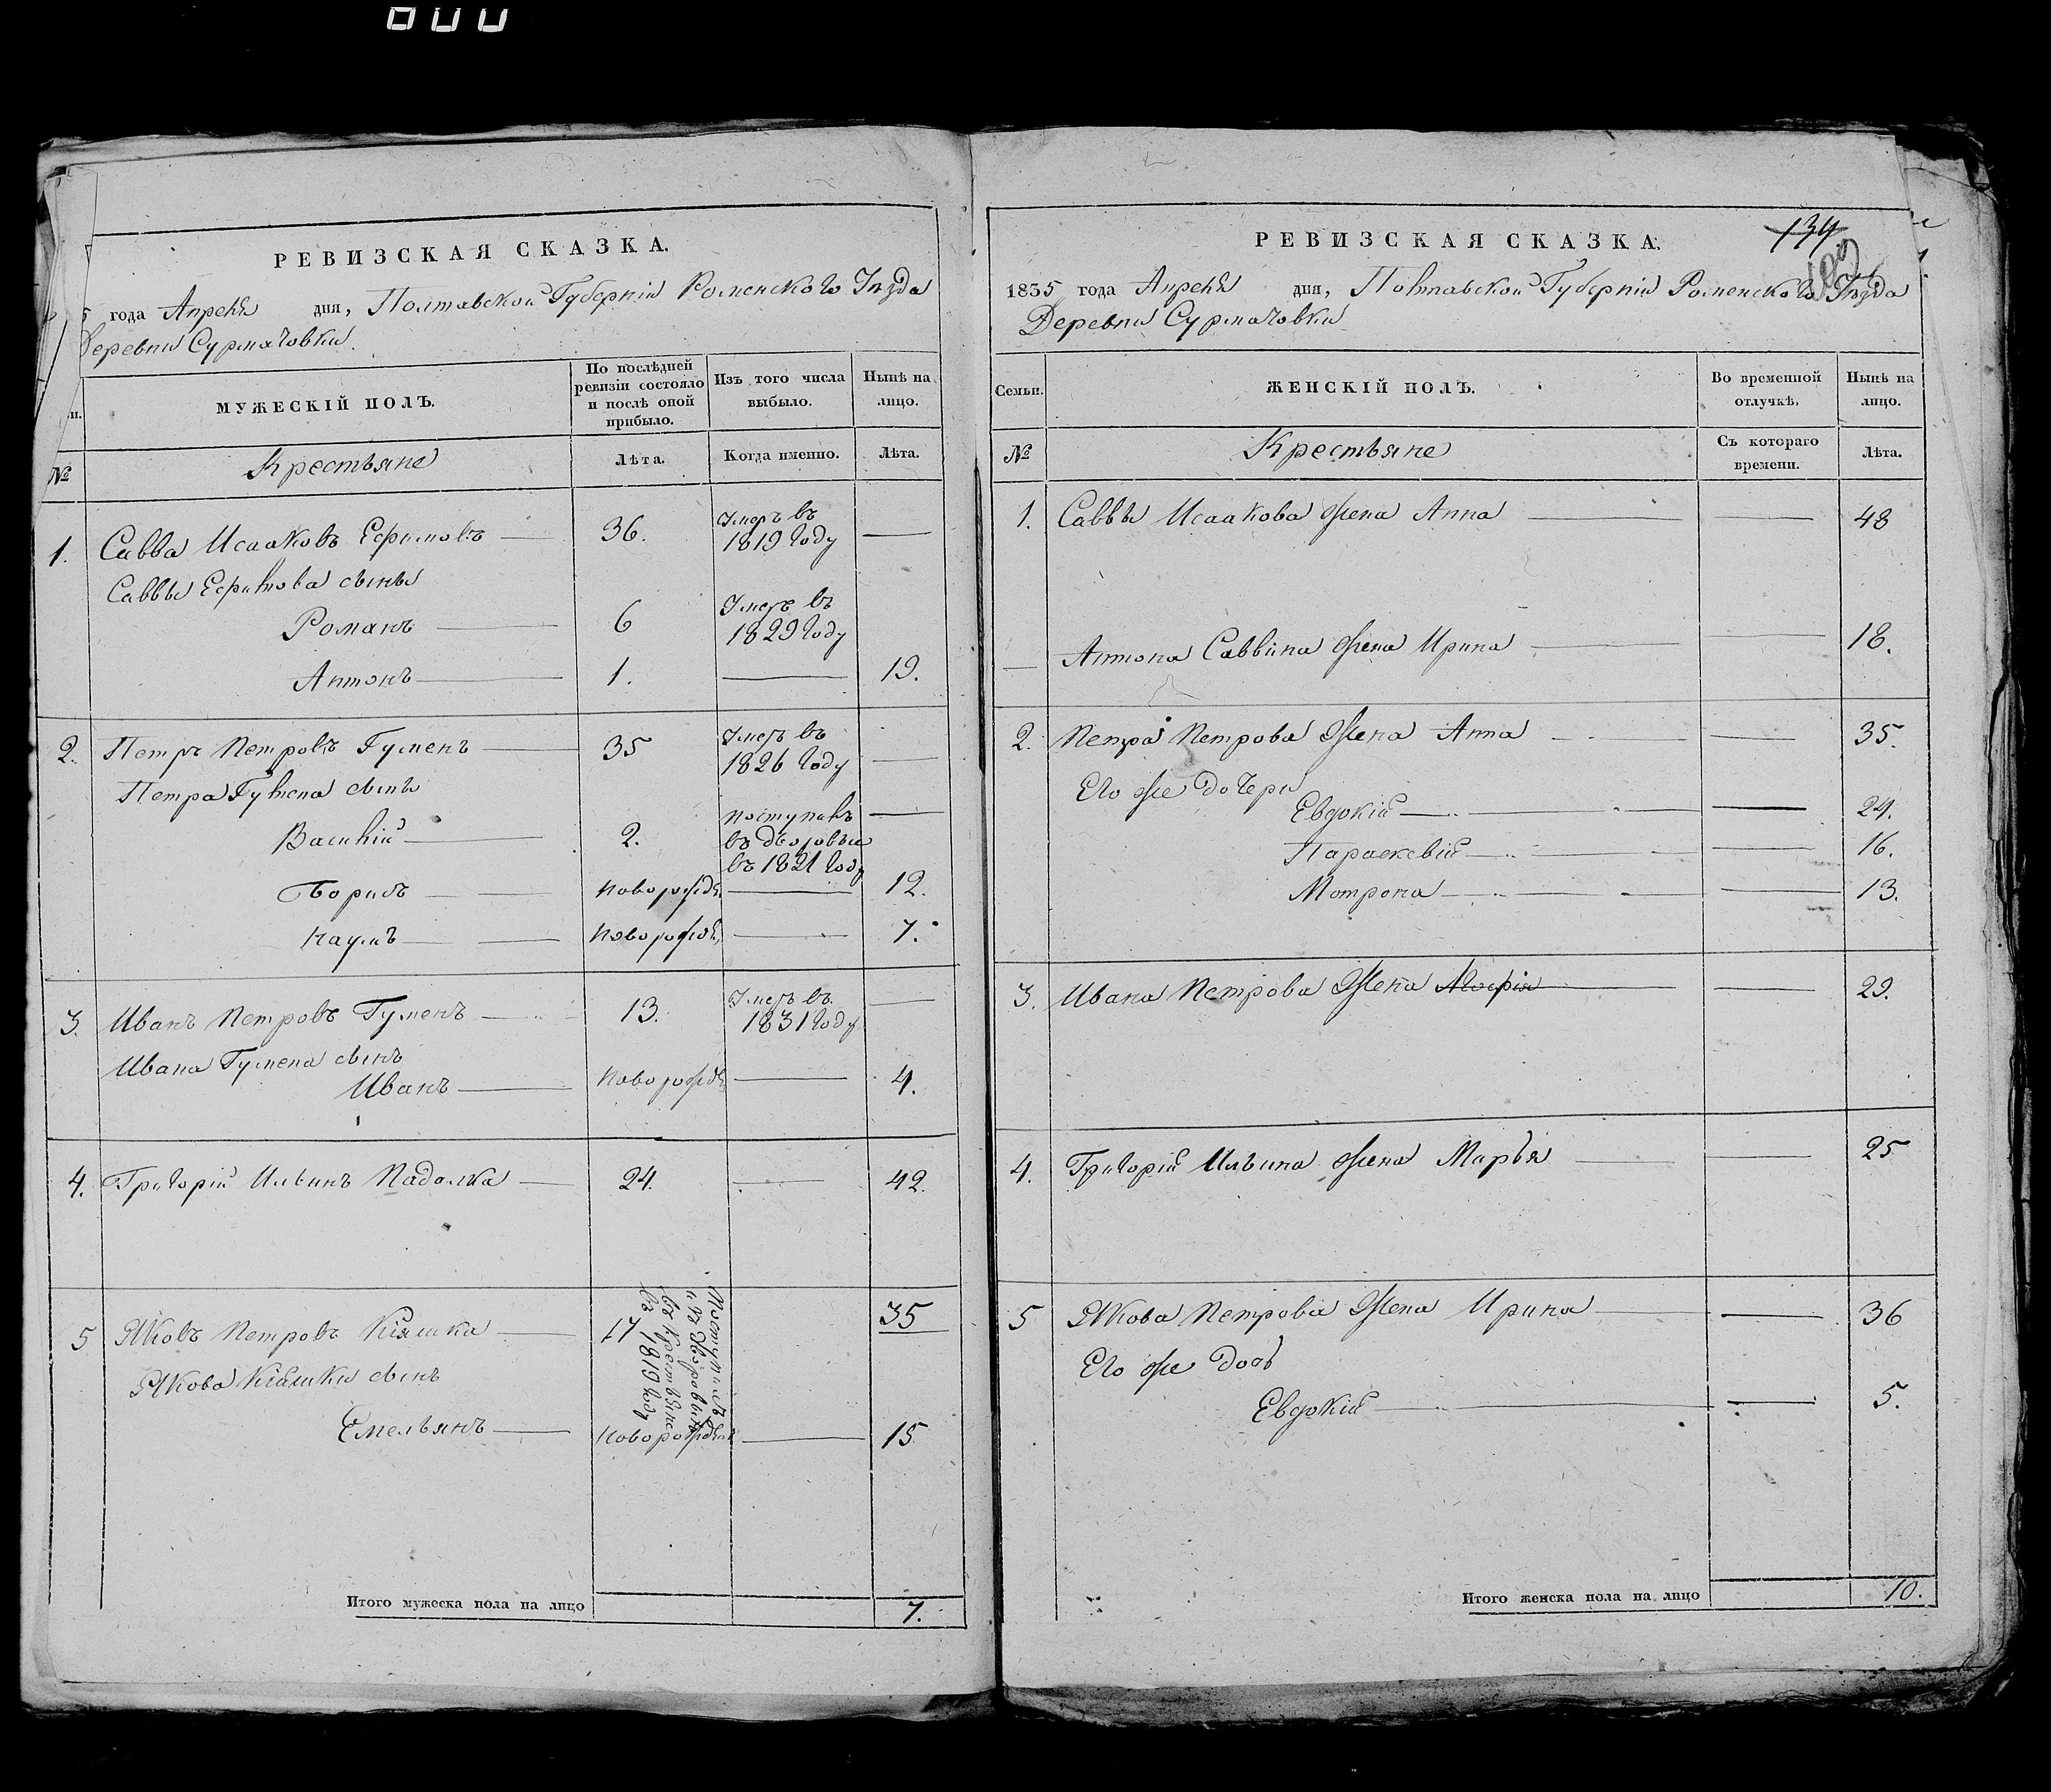 РЕВИЗСКАЯ СКАЗКА.
года Апреля дня, Полтавской Губерніи Роменского Уѣзда
Деревни Сурмачовки
МУЖЕСКІЙ ПОЛЪ.
По послѣдней ревизіи состояло и послѣ оной прибыло.
Изъ того числа выбыло.
Нынѣ на лицо.
№ Крестьяне Лѣта. Когда именно. Лѣта.
1. Савва Исааковъ Ефимовъ 36. Умеръ въ 1819 году
Саввы Ефимова сыны
Романъ 6 Умеръ въ 1829 году
Антонъ 1. 19.
2. Петръ Петровъ Гуменъ 35 Умеръ въ 1826 году
Петра Гумена сынъ
Василій 2. поступилъ въ дворовыи въ 1821 году
Борисъ новорожд. 12.
Наумъ новорожд. 7.
3. Иванъ Петровъ Гуменъ 13. Умеръ въ 1831 году
Ивана Гумена сынъ
Иванъ новорожд. 4.
4. Григорій Ильинъ Падалка 24. 42.
5 Яковъ Петровъ Кіяшка 17 Поступилъ изъ дворовыхъ въ крестьяне въ 1819 году 35
Якова Кіяшки сынъ
Емельянъ новорожден 15
Итого мужеска пола на лицо 7.
РЕВИЗСКАЯ СКАЗКА.
134
1835 года Апреля дня, Полтавской Губерніи Роменского Уѣзда
Деревни Сурмачовки
Семьи.
ЖЕНСКІЙ ПОЛЪ.
Во временной отлучкѣ.
Нынѣ на лицо.
№ Крестьяне Съ котораго времени. Лѣта.
1. Саввы Исаакова жена Анна 48
Антона Саввина жена Ирина 18.
2. Петра Петрова жена Анна 35.
Его же дочери
Евдокія 24.
Параскевія 16.
Мотрона 13.
3. Ивана Петрова жена Агафія 29.
4. Григорія Ильина жена Марья 25
5 Якова Петрова жена Ирина 36
Его же дочь
Евдокія 5.
Итого женска пола на лицо 10.